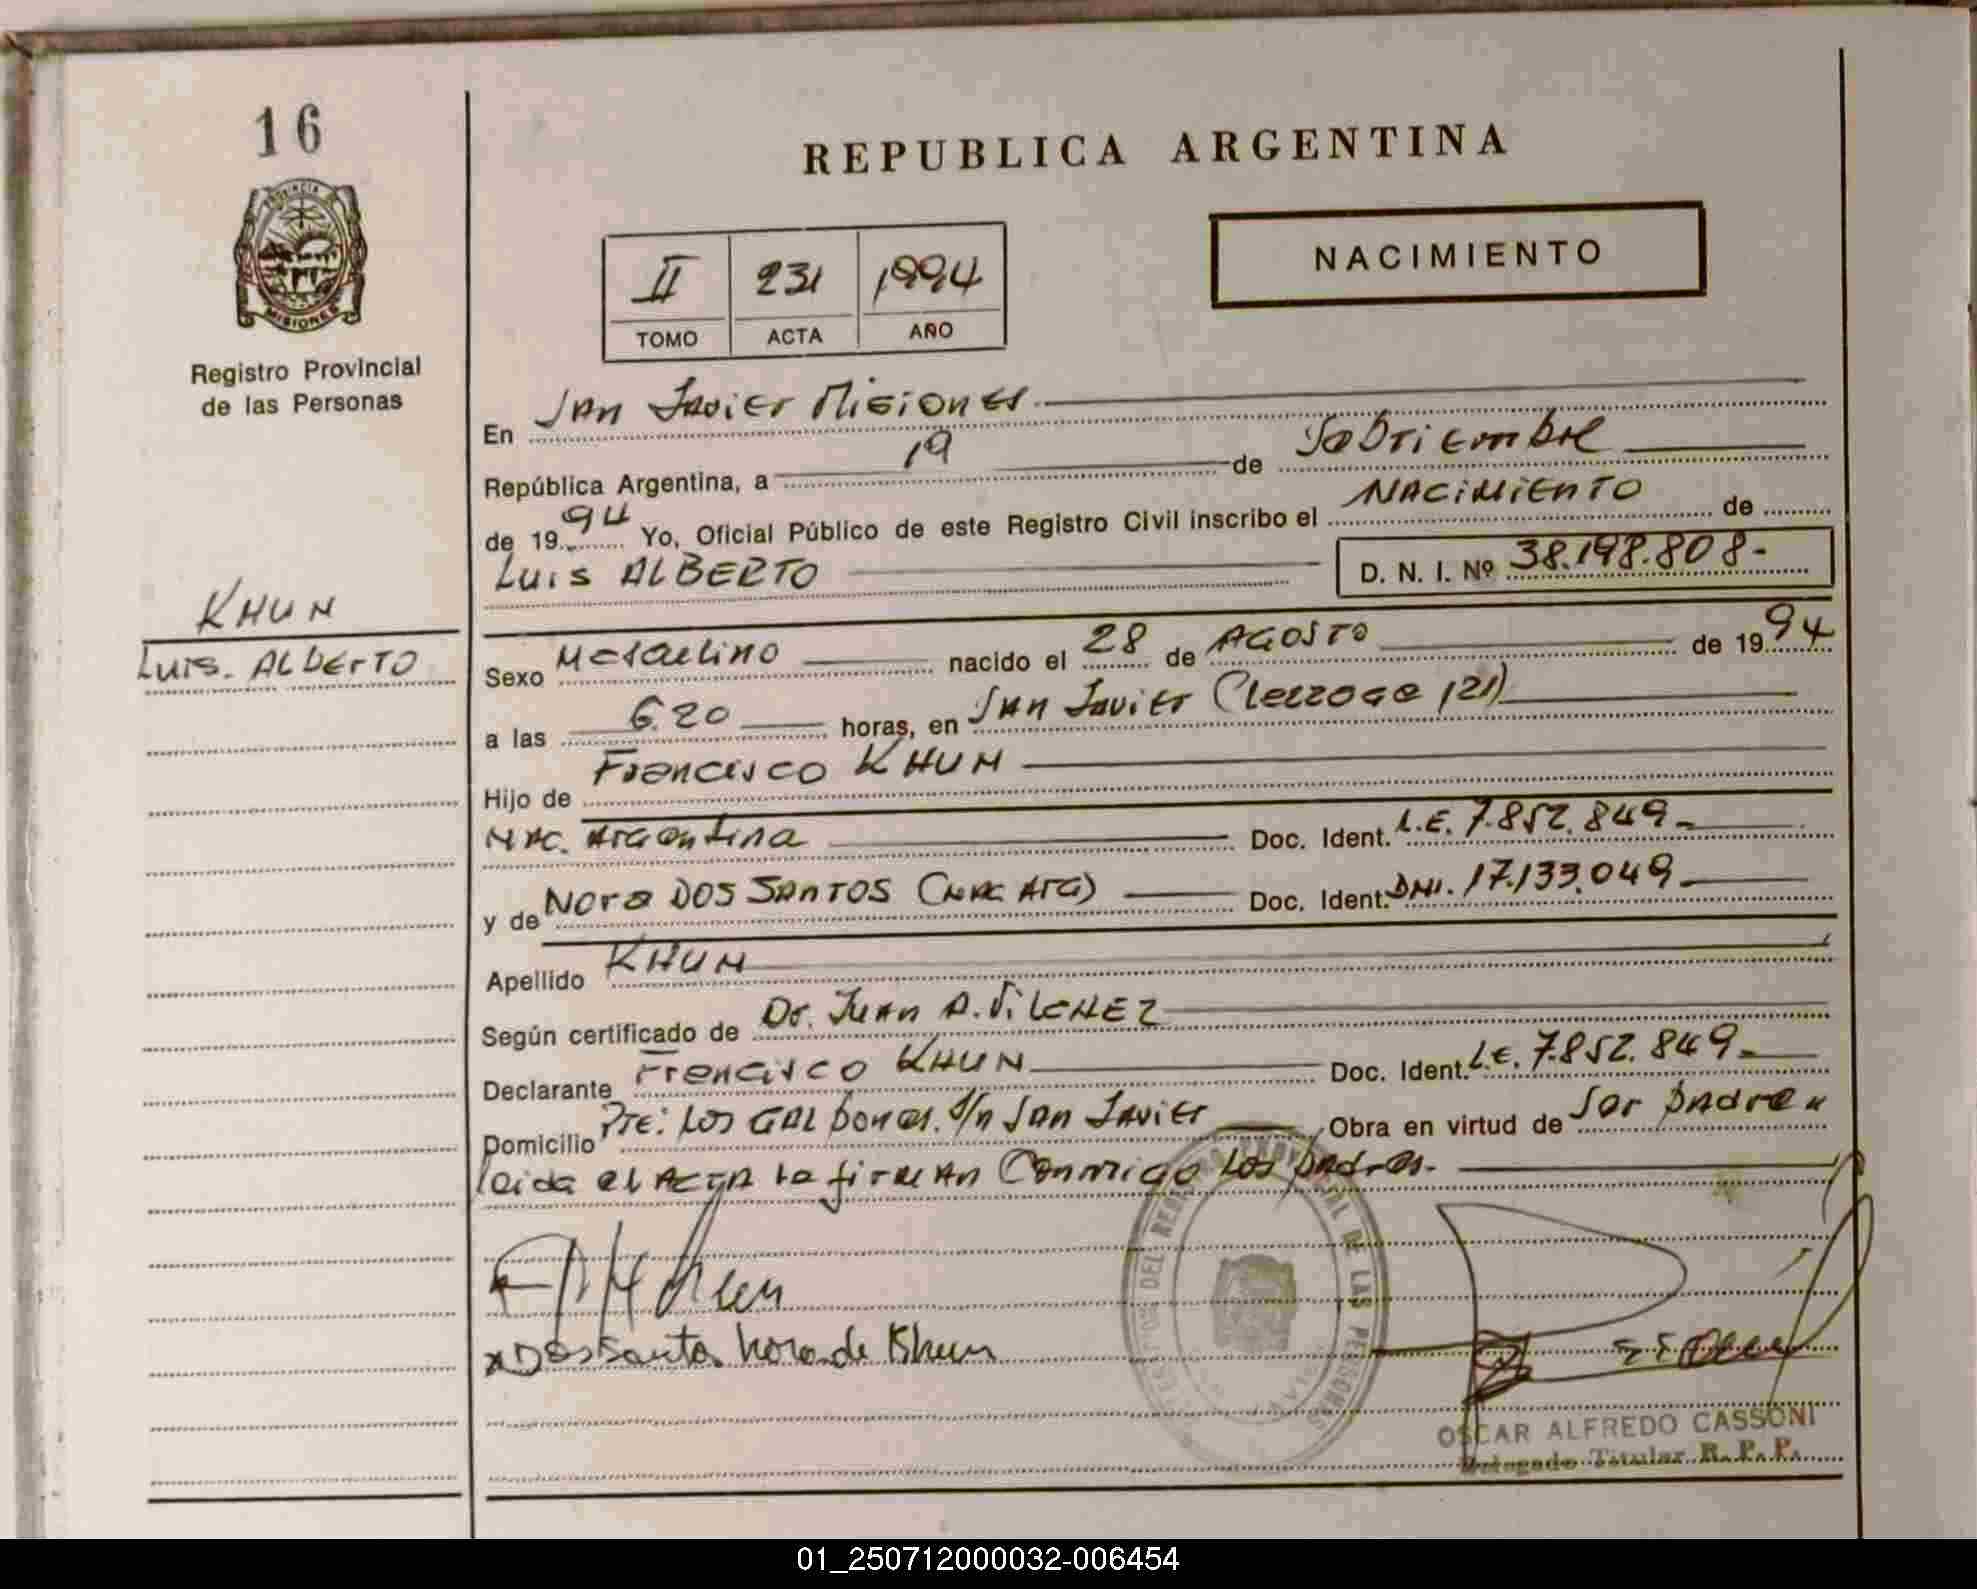 16
PROVINCIA DE
MISIONES
Registro Provincial
de las Personas
KHUN
Luis. ALBErTO
REPUBLICA ARGENTINA
NACIMIENTO
II 231 1994
TOMO ACTA AÑO
En San Javier Misiones
República Argentina, a 19 de Setiembre
de 1994 Yo, Oficial Público de este Registro Civil inscribo el NACIMIENTO de
Luis ALBERTO D. N. I. Nº 38.198.808-
Sexo Masculino nacido el 28 de AGOSTO de 1994
a las 6.20 horas, en San Javier
Hijo de Francisco KHUN
NAC. Argentina Doc. Ident. L.E. 7.852.849-
y de Nora DOS SANTOS (NAC ArG) Doc. Ident. DNI. 17.133.049
Apellido KHUN
Según certificado de Dr. Juan A. VILCHEZ
Declarante Francisco KHUN Doc. Ident. L.E. 7.852.849-
Domicilio Pje: Los GALpones. S/n San Javier Obra en virtud de Ser padre
leida el ACTA la firman Conmigo Los padres.-
x Dos Santos Nora de Khun
REGISTRO PROVINCIAL DE LAS PERSONAS
OSCAR ALFREDO CASSONI
Delegado Titular R. P. P.
01_250712000032-006454